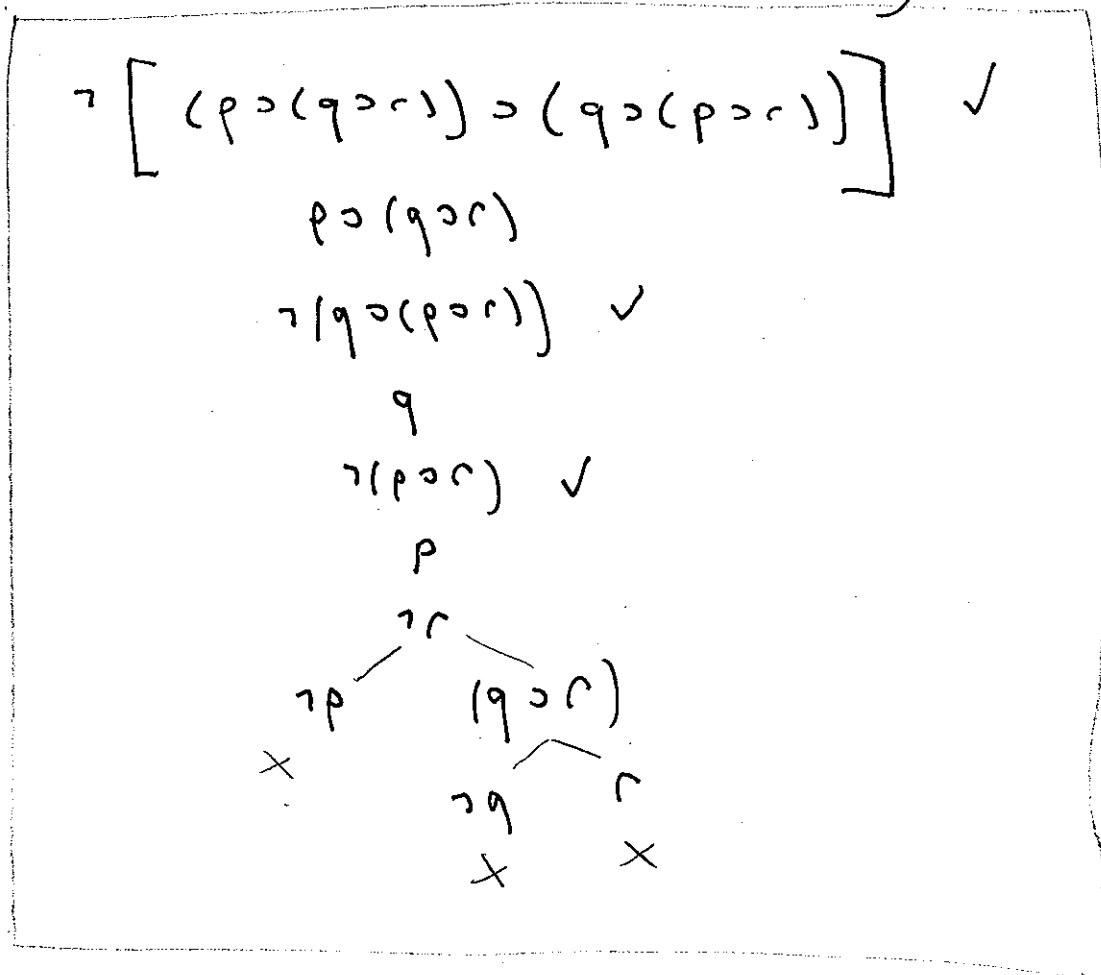 ¬[(p⊃(q⊃r))⊃(q⊃(p⊃r))] ✓
p⊃(q⊃r)
¬(q⊃(p⊃r)) ✓
q
¬(p⊃r) ✓
p
¬r
¬p (q⊃r)
×
¬q r
× ×